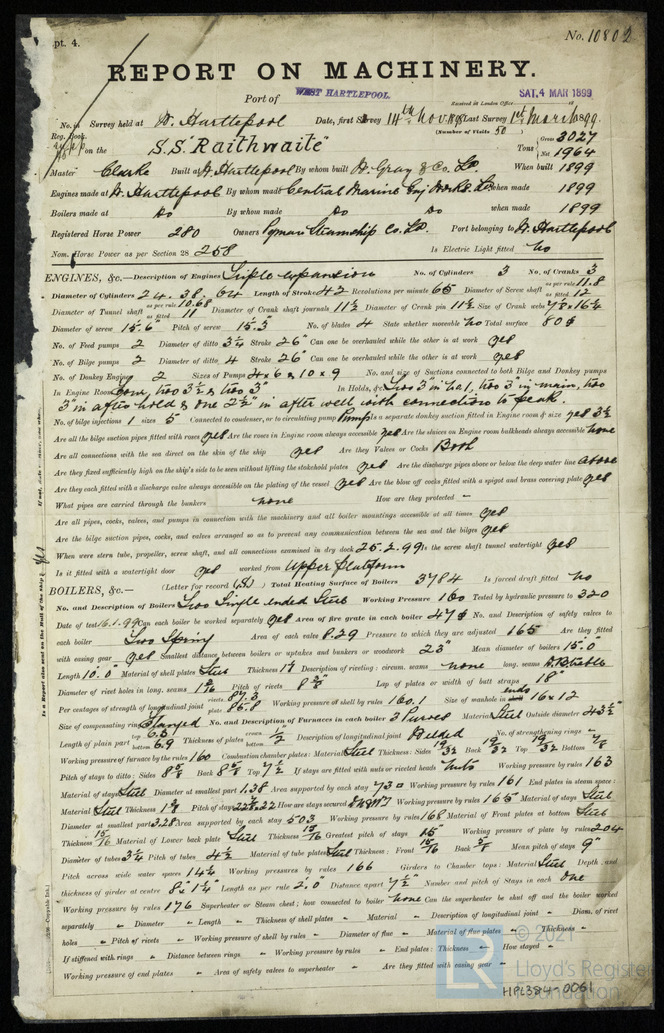 pt. 4.
No. 10802
REPORT ON MACHINERY.
Port of WEST HARTLEPOOL
Received in London Office SAT. 4 MAR 1899
No. in Reg. Book. Survey held at W. Hartlepool Date, first Survey 14th Nov. Last Survey 1st March 1899.
(Number of Visits 50)
on the S.S. "Raithwaite" Tons Gross 3027 Net 1964
Master Clarke Built at W. Hartlepool By whom built W. Gray & Co. Ld When built 1899
Engines made at W. Hartlepool By whom made Central Marine Eng. Works. Ld when made 1899
Boilers made at Do By whom made Do Do when made 1899
Registered Horse Power 280 Owners Pyman Steamship Co. Ld. Port belonging to W. Hartlepool
Nom. Horse Power as per Section 28 258 Is Electric Light fitted No
ENGINES, &c.— Description of Engines Triple expansion No. of Cylinders 3 No. of Cranks 3
Diameter of Cylinders 24. 38. 64 Length of Stroke 42 Revolutions per minute 65 Diameter of Screw shaft as per rule 11.8 as fitted 12
Diameter of Tunnel shaft as per rule 10.68 as fitted 11 Diameter of Crank shaft journals 11½ Diameter of Crank pin 11½ Size of Crank webs 7⅞ x 16¼
Diameter of screw 15.6" Pitch of screw 15.3" No. of blades 4 State whether moveable No Total surface 80
No. of Feed pumps 2 Diameter of ditto 3¼ Stroke 26" Can one be overhauled while the other is at work yes
No. of Bilge pumps 2 Diameter of ditto 4 Stroke 26" Can one be overhauled while the other is at work yes
No. of Donkey Engines 2 Sizes of Pumps 4 x 6 & 10 x 9 No. and size of Suctions connected to both Bilge and Donkey pumps
In Engine Room Four, two 3½ & two 3" In Holds, &c. Two 3" in No. 1, two 3" in main, two
3" in after hold & one 2½" in after well with connection to peak.
No. of bilge injections 1 sizes 5 Connected to condenser, or to circulating pump Pump Is a separate donkey suction fitted in Engine room & size yes 3½
Are all the bilge suction pipes fitted with roses yes Are the roses in Engine room always accessible yes Are the sluices on Engine room bulkheads always accessible None
Are all connections with the sea direct on the skin of the ship yes Are they Valves or Cocks Both
Are they fixed sufficiently high on the ship's side to be seen without lifting the stokehold plates yes Are the discharge pipes above or below the deep water line above
Are they each fitted with a discharge valve always accessible on the plating of the vessel yes Are the blow off cocks fitted with a spigot and brass covering plate yes
What pipes are carried through the bunkers none How are they protected –
Are all pipes, cocks, valves, and pumps in connection with the machinery and all boiler mountings accessible at all times yes
Are the bilge suction pipes, cocks, and valves arranged so as to prevent any communication between the sea and the bilges yes
When were stern tube, propeller, screw shaft, and all connections examined in dry dock 25.2.99 Is the screw shaft tunnel watertight yes
Is it fitted with a watertight door yes worked from Upper Platform
BOILERS, &c.— (Letter for record (S)) Total Heating Surface of Boilers 3784 Is forced draft fitted No
No. and Description of Boilers Two Single ended Steel Working Pressure 160 Tested by hydraulic pressure to 320
Date of test 16.1.99 Can each boiler be worked separately yes Area of fire grate in each boiler 47 No. and Description of safety valves to
each boiler Two Spring Area of each valve 8.29 Pressure to which they are adjusted 165 Are they fitted
with easing gear yes Smallest distance between boilers or uptakes and bunkers or woodwork 23" Mean diameter of boilers 15.0"
Length 10.0" Material of shell plates Steel Thickness Description of riveting: circum. seams none long. seams
Diameter of rivet holes in long. seams Pitch of rivets Lap of plates or width of butt straps 18"
Per centages of strength of longitudinal joint rivets 87.3 plate 85.8 Working pressure of shell by rules 160.1 Size of manhole in ends 16 x 12
Size of compensating ring Flanged No. and Description of Furnaces in each boiler 3 Purves Material Steel Outside diameter 43½"
Length of plain part top 6.5 bottom 6.9 Thickness of plates ½ Description of longitudinal joint Welded No. of strengthening rings –
Working pressure of furnace by the rules 160 Combustion chamber plates: Material Steel Thickness: Sides 19/32 Back 19/32 Top 19/32 Bottom ⅞
Pitch of stays to ditto: Sides Back Top 7½ If stays are fitted with nuts or riveted heads Nuts Working pressure by rules 163
Material of stays Steel Diameter at smallest part 1.38 Area supported by each stay 73 Working pressure by rules 161 End plates in steam space:
Material Steel Thickness Pitch of stays How are stays secured Working pressure by rules 165 Material of stays Steel
Diameter at smallest part 3.28 Area supported by each stay 503 Working pressure by rules 168 Material of Front plates at bottom Steel
Thickness 15/16 Material of Lower back plate Steel Thickness 15/16 Greatest pitch of stays 15 Working pressure of plate by rules 204
Diameter of tubes 3¼ Pitch of tubes 4½ Material of tube plates Steel Thickness: Front 15/16 Back ¾ Mean pitch of stays 9"
Pitch across wide water spaces 14¼ Working pressures by rules 166 Girders to Chamber tops: Material Steel Depth and
thickness of girder at centre 8: 1¼" Length as per rule 2.0" Distance apart 7½" Number and pitch of Stays in each One
Working pressure by rules 176 Superheater or Steam chest; how connected to boiler None Can the superheater be shut off and the boiler worked
separately – Diameter – Length – Thickness of shell plates – Material – Description of longitudinal joint – Diam. of rivet
holes – Pitch of rivets – Working pressure of shell by rules – Diameter of flue – Material of flue plates – Thickness –
If stiffened with rings – Distance between rings – Working pressure by rules – End plates: Thickness – How stayed –
Working pressure of end plates – Area of safety valves to superheater – Are they fitted with easing gear –
© 2021
Lloyd's Register
Foundation
HPL384-0061